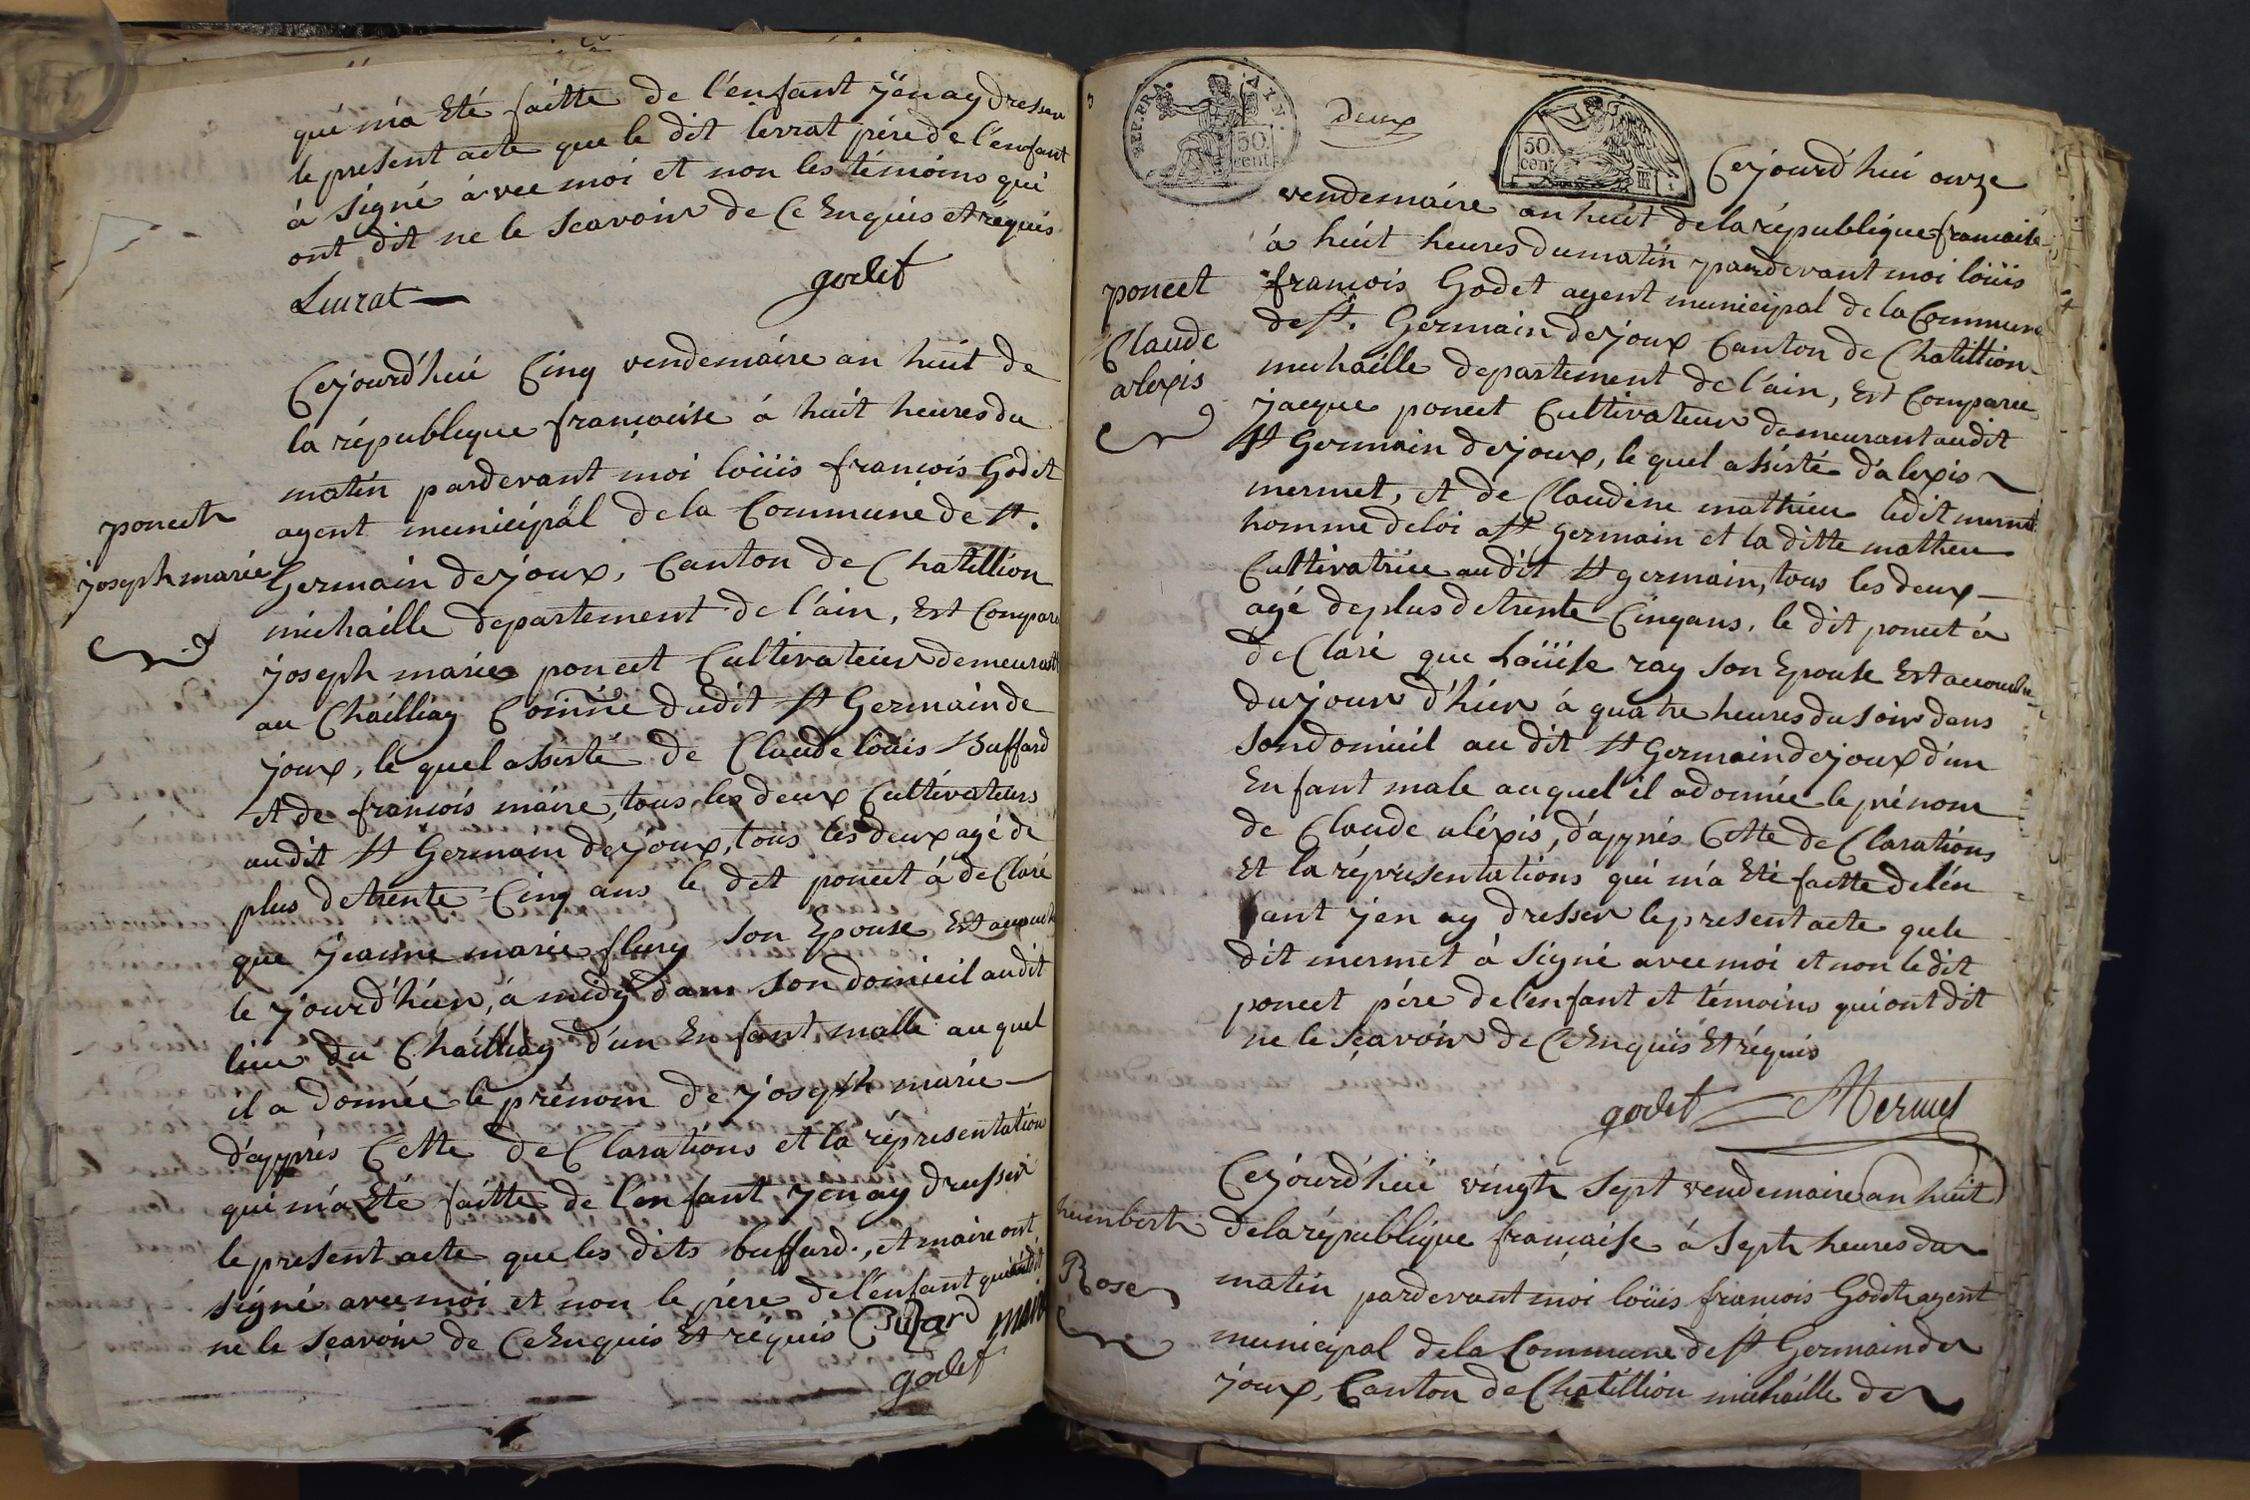 qui m'a Eté faitte de l'énfant j'én ay dresser
le present acte que le dit levrat pére de l'énfant
á signé ávec moi et non les témoins qui
ont dit ne le scavoir de Ce Enquis et réquis
Levrat
godet
Cejourd'hui Cinq vendemáire an huit de
la république françoise á huit heures du
matin pardevant moi loüis françois Godet
agent municipal de la Commune de st.
poncet
joseph marie
Germain de joux, Canton de Chatillion
michaille departement de l'áin, Est Comparu
joseph marie poncet Cultivateur demeurant
au Chailliay Comne dudit st Germain de
joux, le quel assisté de Claude loüis Buffard
et de françois maire, tous les deux Cultivateurs
audit st Germain de joux, tous les deux agé de
plus de trente Cinq ans le dit poncet á deClaré
que jeanne marie flury son Epouse Est accouché
le jourd'hier, á midy dans son domicil audit
lieu du Chailliay d'un Enfant malle auquel
il a donnée le prénom de joseph marie
d'apprés Cette deClarations et la répresentation
qui m'a Eté faitte de l'enfant j'en ay dresser
le present acte que les dits buffard, et maire ont
signé avec moi et non le pére de l'énfant qui a dit
ne le sçavoir de Ce Enquis Et réquis
Bufard
maire
godet
REP. FRA.
AIN.
50.
cent.
Deux
50.
cent.
Cejourd'hui onze
vendemaire an huit de la république francaise
á huit heures du matin pardevant moi loüis
françois Godet agent municipal de la Commune
de st. Germain de joux Canton de Chatillion
poncet
Claude
alexis
michaille departement de l'ain, Est Comparu
jacque poncet Cultivateur demeurant audit
st Germain de joux, le quel assisté d'alexis
mermet, et de Claudine mathieu ledit mermet
homme de loi a st germain et la ditte matheu
Cultivatrice audit st germain, tous les deux
agé de plus de trente Cinq ans, le dit poncet á
deClaré que Loüise ray son Epouse Est accouchée
du jour d'hier á quatre heures du soir dans
son domicil au dit st Germain de joux d'un
Enfant male auquel il a donnée le prénom
de Claude aléxis, d'apprés Cette deClarations
Et la répresentations qui m'a Eté faitte de l'én
fant j'en ay dresser le present acte que le
dit mermet á signé avec moi et non ledit
poncet pére de l'enfant et témoins qui ont dit
ne le sçavoir de Ce Enquis Et réquis
godet
Mermet
Cejourd'hui vingt sept vendemaire an huit
humbert
Rose
de la république francaise á sept heures du
matin pardevant moi loüis françois Godet agent
municipal de la Commune de st Germain de
joux, Canton de Chatillion michaille de